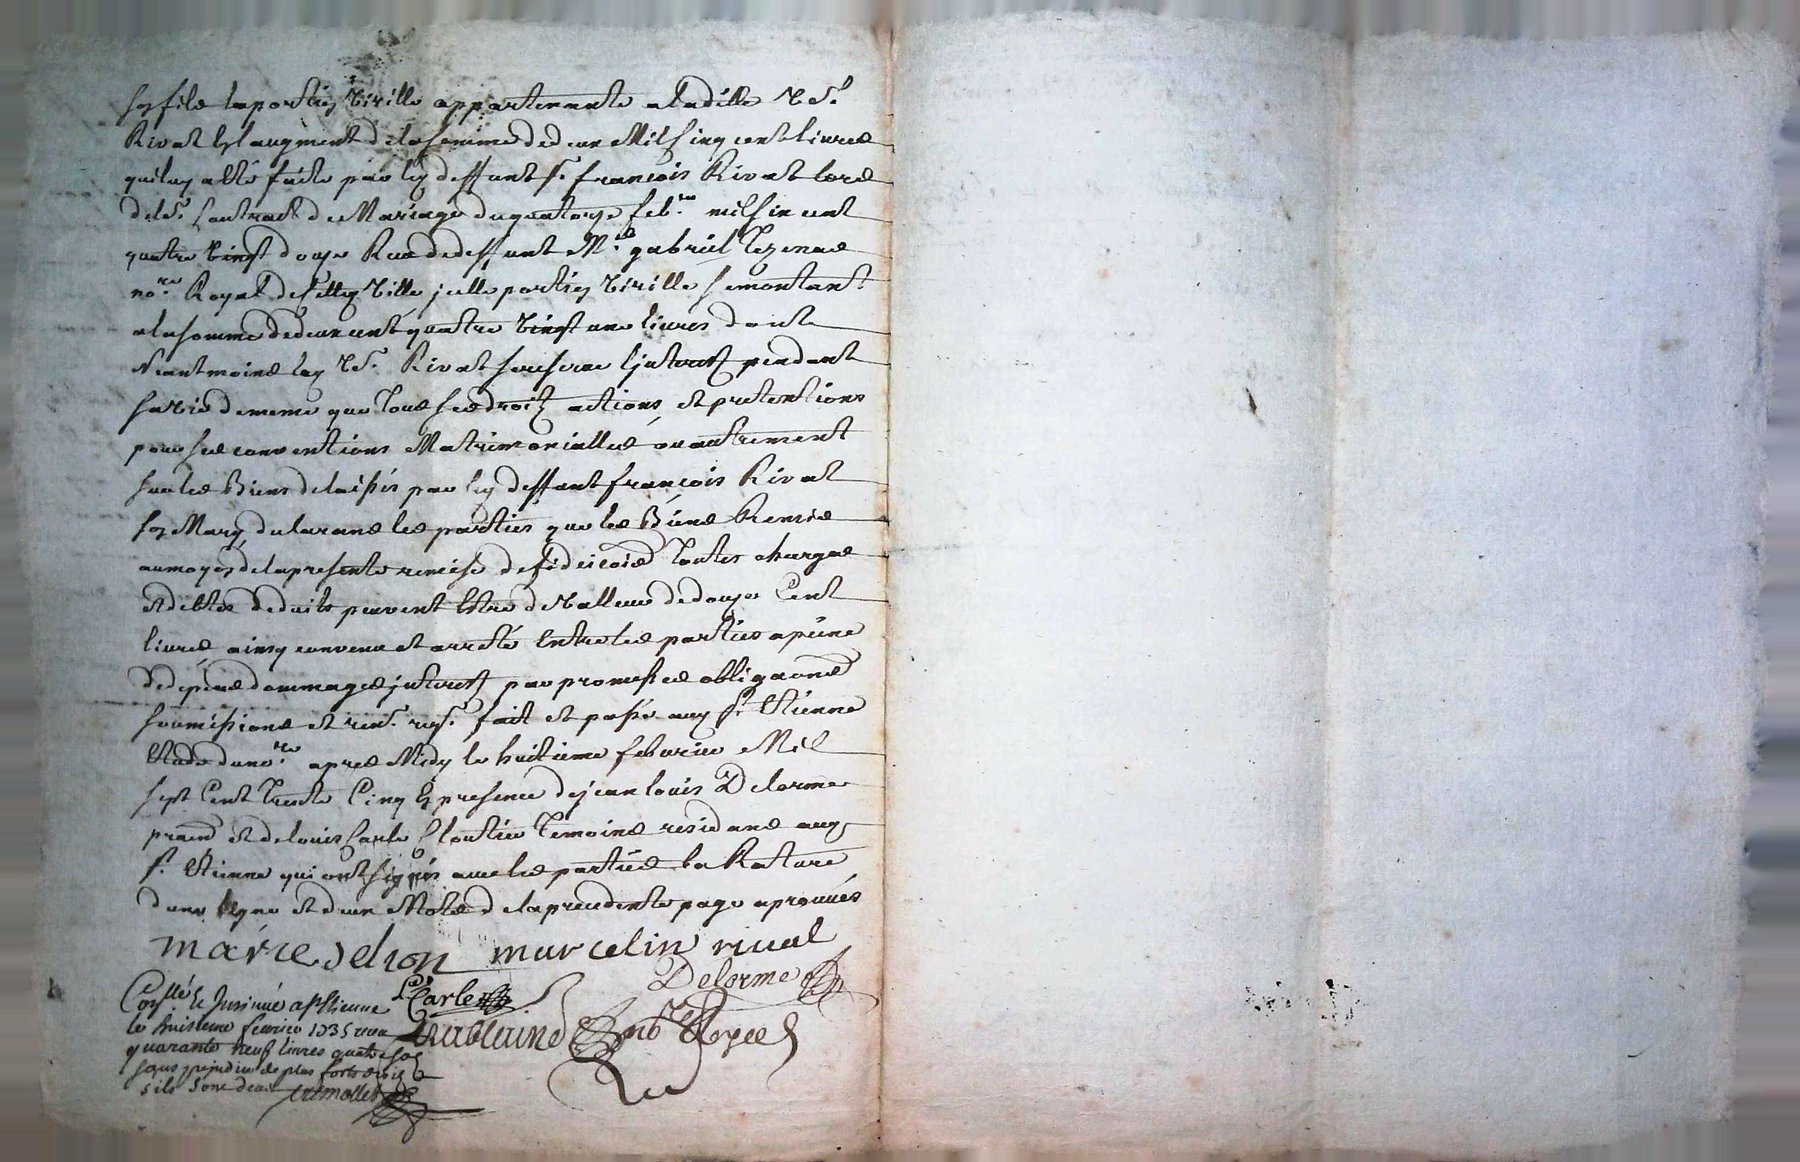 son fils la portion virille appartenante a laditte v.e S.r
Rivat en augment de la somme de deux Mil cinq cent livres
qui luy a été faite par led deffunt S.r françois Rivat lors
de le.r Contract de Mariage du quatorze feb.re mil six cent
quatre vingt douze Reçu de deffunt M.re gabriel Tezenas
no.re Royal de cette ville jcelle portion virille se montant
a la somme de deux cent quatre vingt une livres dont
Neantmoins lad v.e Rivat se reserve l'jnterest pendant
sa vie de meme que tous ses droits actions et pretentions
pour ses conventions Matrimonialles ou autrement
sur les Biens delaissés par led deffunt françois Rivat
son Mary, declarans les parties que les Biens Remis
au moyen de la presente remise de fideicomis toutes charges
et debtes deduits peuvent être de valleur de douze Cent
livres ainsy convenu et arrêté Entre les parties a peine
de depens dommages jnterest par promesses obligaons
soumissions et ren.s req.s fait et passé aud S.t Etienne
Etude du no.re apres Midy le huitieme febvrier Mil
sept Cent Trente Cinq En presence de jean louis Delorme
pratn et de louis Carle Cloutier Temoins residans aud
S.t Etienne qui ont signés avec les parties la Rature
d'une ligne et d'un Mot de la precedente page aprouvés
marie delion marcelin rivat
Delorme
L.s Carle
Conllé & Insinué a St Etienne
le huitieme fevrier 1735 reçu
quarante neuf livres quatre sols
sans prejudice de plus forts droits
s'ils sont deus